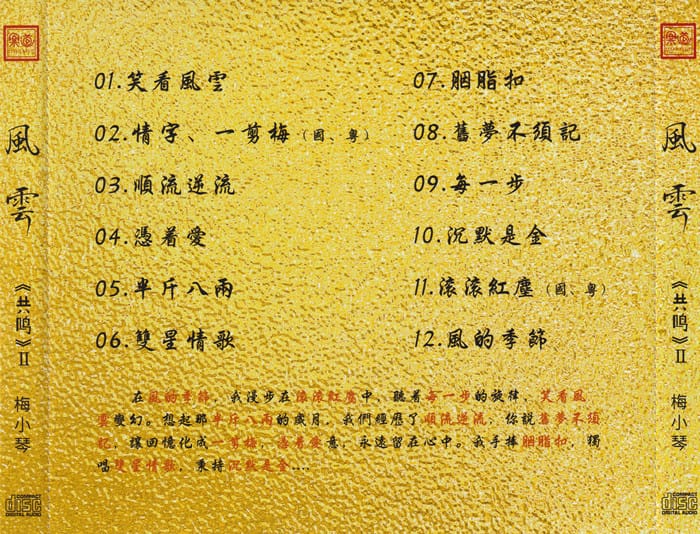 01.笑看風雲
02.情字、一剪梅（國、粵）
03.順流逆流
04.憑着愛
05.半斤八兩
06.雙星情歌
07.胭脂扣
08.舊夢不須記
09.每一步
10.沉默是金
11.滚滚紅塵（國、粵）
12.風的季節
在風的季節，我漫步在滚滚紅塵中，聽着每一步的旋律，笑看風
雲變幻。想起那半斤八兩的歲月，我們經歷了順流逆流，你說舊夢不須
記，讓回憶化成一剪梅，憑着愛意，永遠留在心中。我手捧胭脂扣，獨
唱雙星情歌，秉持沉默是金....
風雲
《共鸣》II
梅小琴
COMPACT
disc
DIGITAL AUDIO
風雲
《共鸣》II
梅小琴
COMPACT
disc
DIGITAL AUDIO